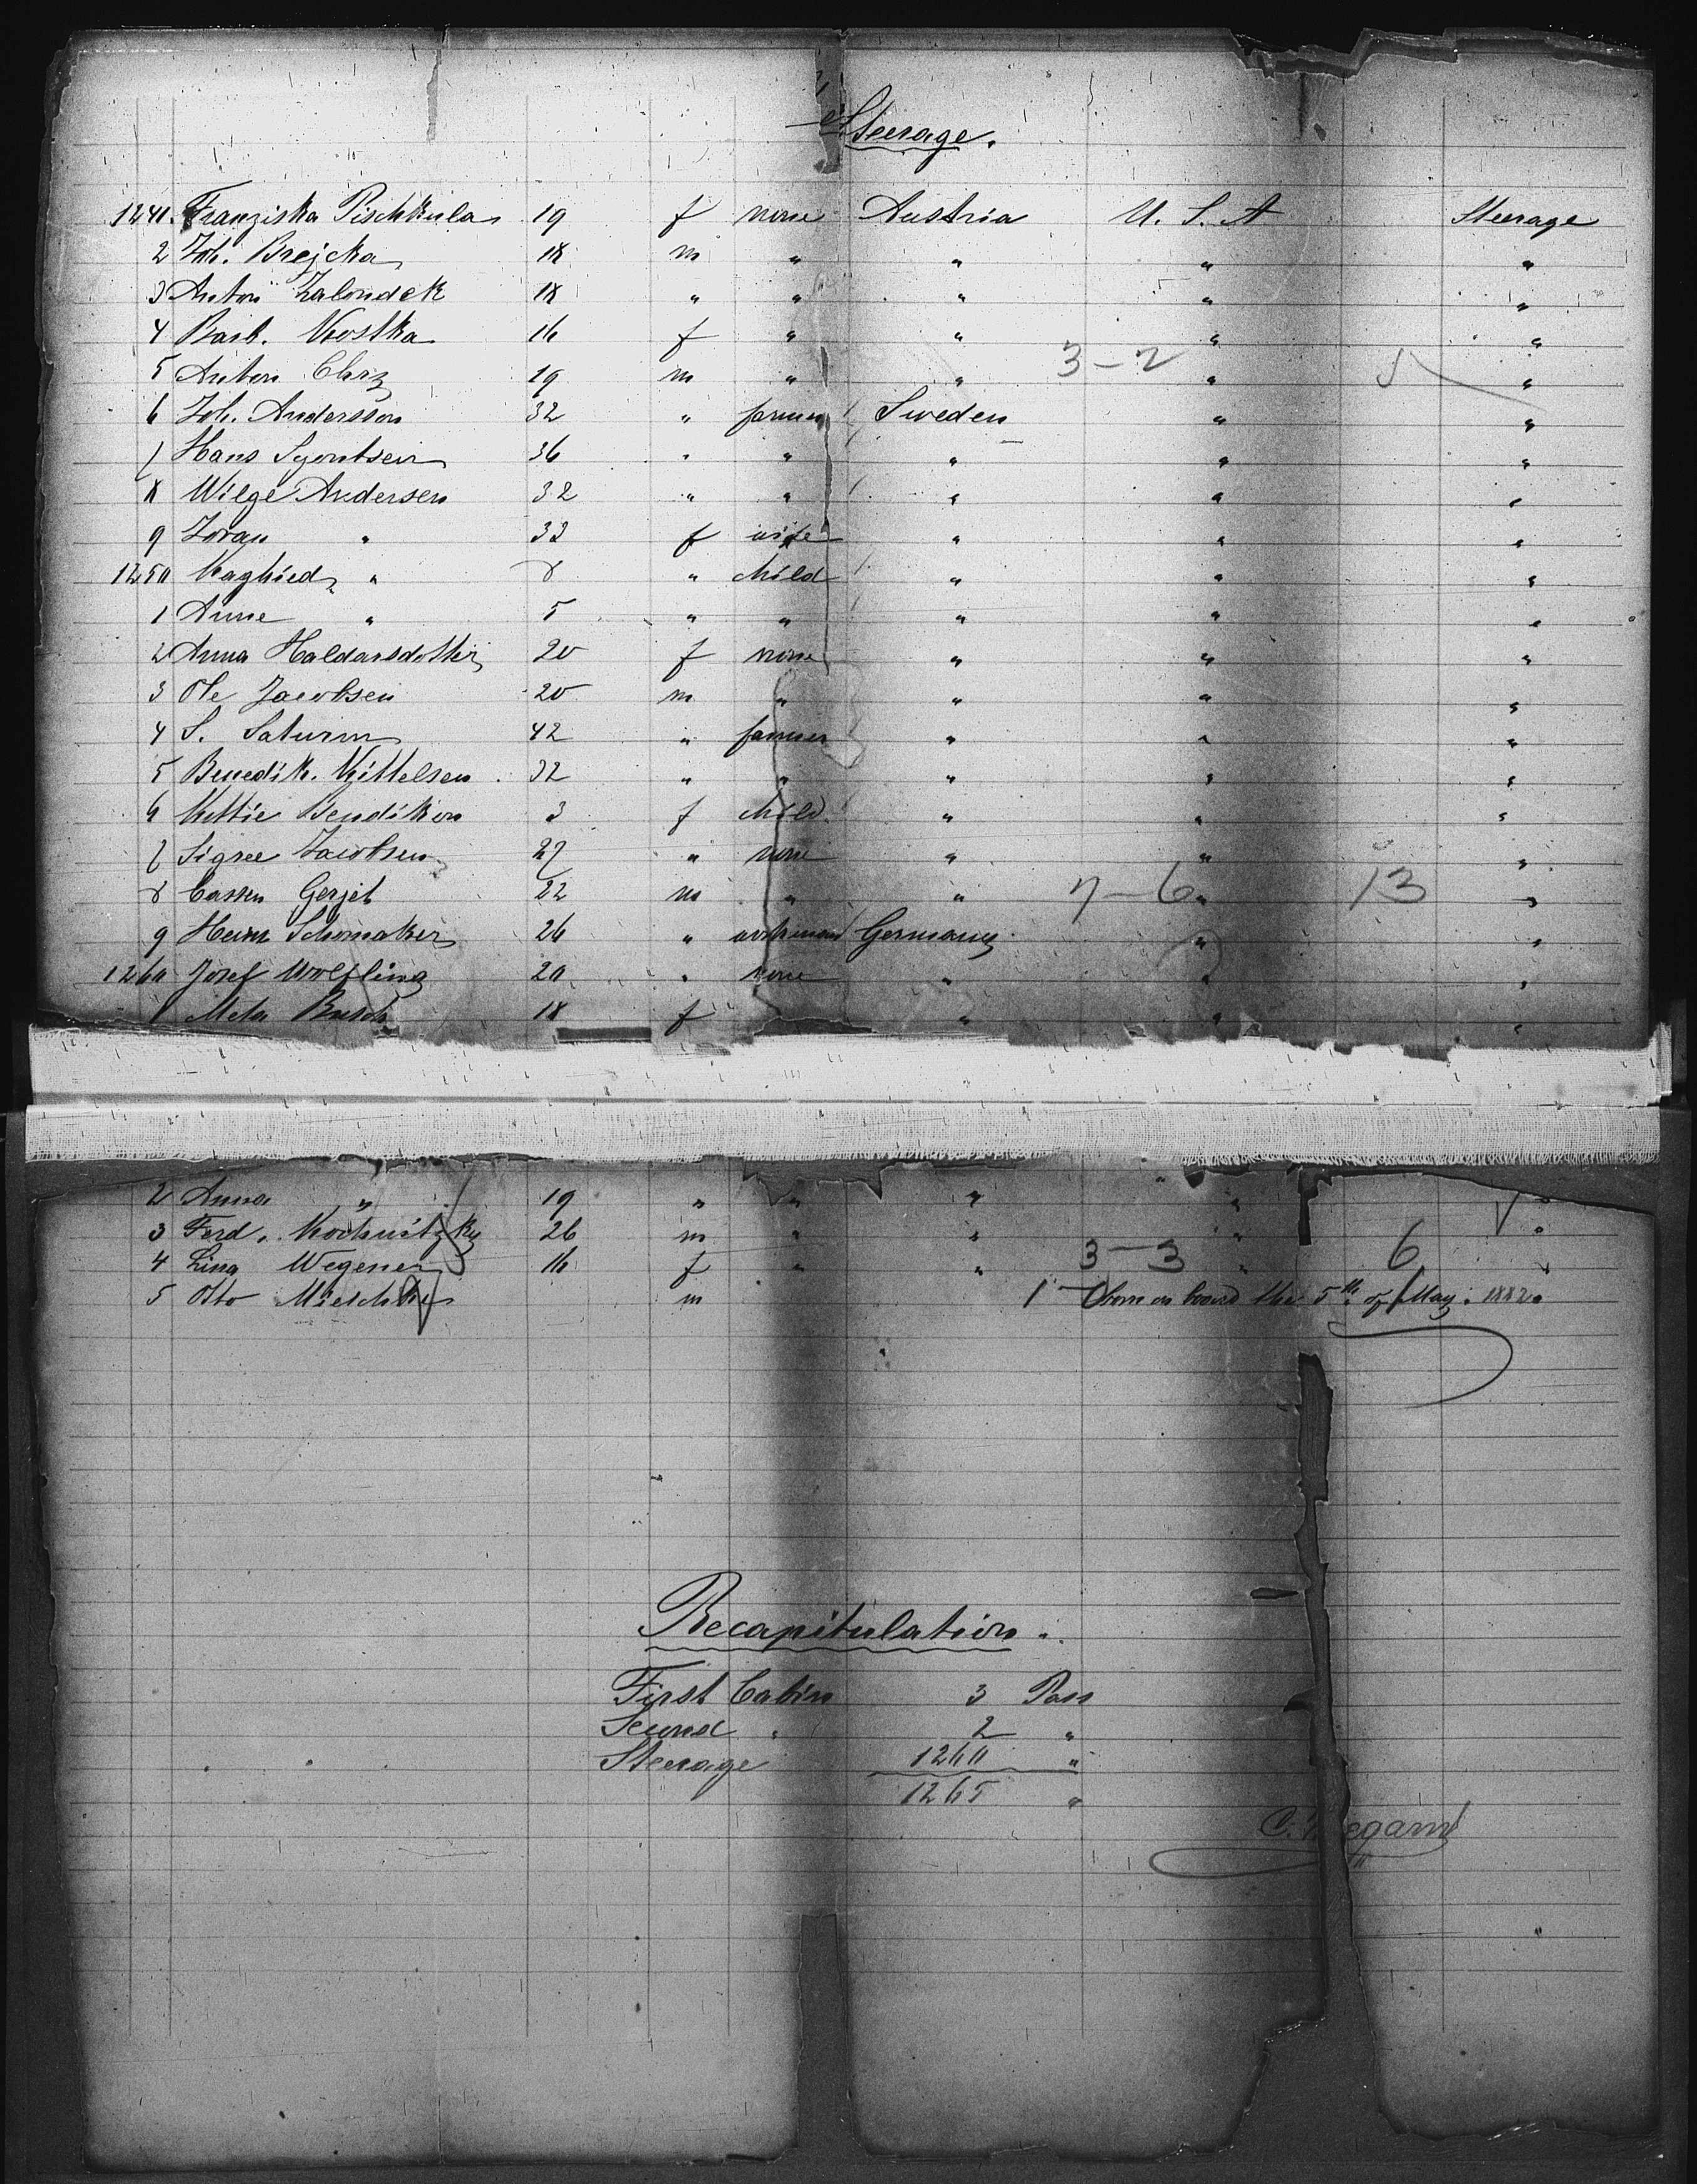 Steerage.
1241. Franziska Pischkula 19 f none Austria U. S. A Steerage
2 Joh. Brejcka 18 m " " " "
3 Anton Zaloudek 18 " " " " "
4 Barb. Kostka 16 f " " " "
5 Anton 19 m " " 3-2 " 5 "
6 Joh. Andersson 32 " farmer Sweden " "
7 Hans 36 " " " " "
8 Wilge Andersen 32 " " " " "
9 " 33 f wife " " "
1250 " 8 " child " " "
1 Anne " 5 " " " " "
2 Anna Haldarsdotter 20 f none " " "
3 Ole Jacobsen 20 m " " " "
4 S. Saturin 42 " farmer " " "
5 Benedik. Kittelsen 32 " " " " "
6 Kittie Bendikson 3 f child " " "
7 Sigree Jacobsen 27 " none " " "
8 Cassen Gerjet 22 m " " 7-6 " 13 "
9 Heinr Schomaker 26 " workman Germany " "
1260 Josef Wölfling 20 " none " " "
1 Meta Busch 18 f " " "
2 Anna " 19 " " " " "
3 Ferd. Kochnitzky 26 m " " " "
4 Lina Wegener 16 f " " 3-3 " 6 "
5 Otto Mieschke m 1 born on board the 5th of May. 1882.
Recapitulation.
First Cabin 3 Pass
Second " 2 "
Steerage 1260 "
1265 "